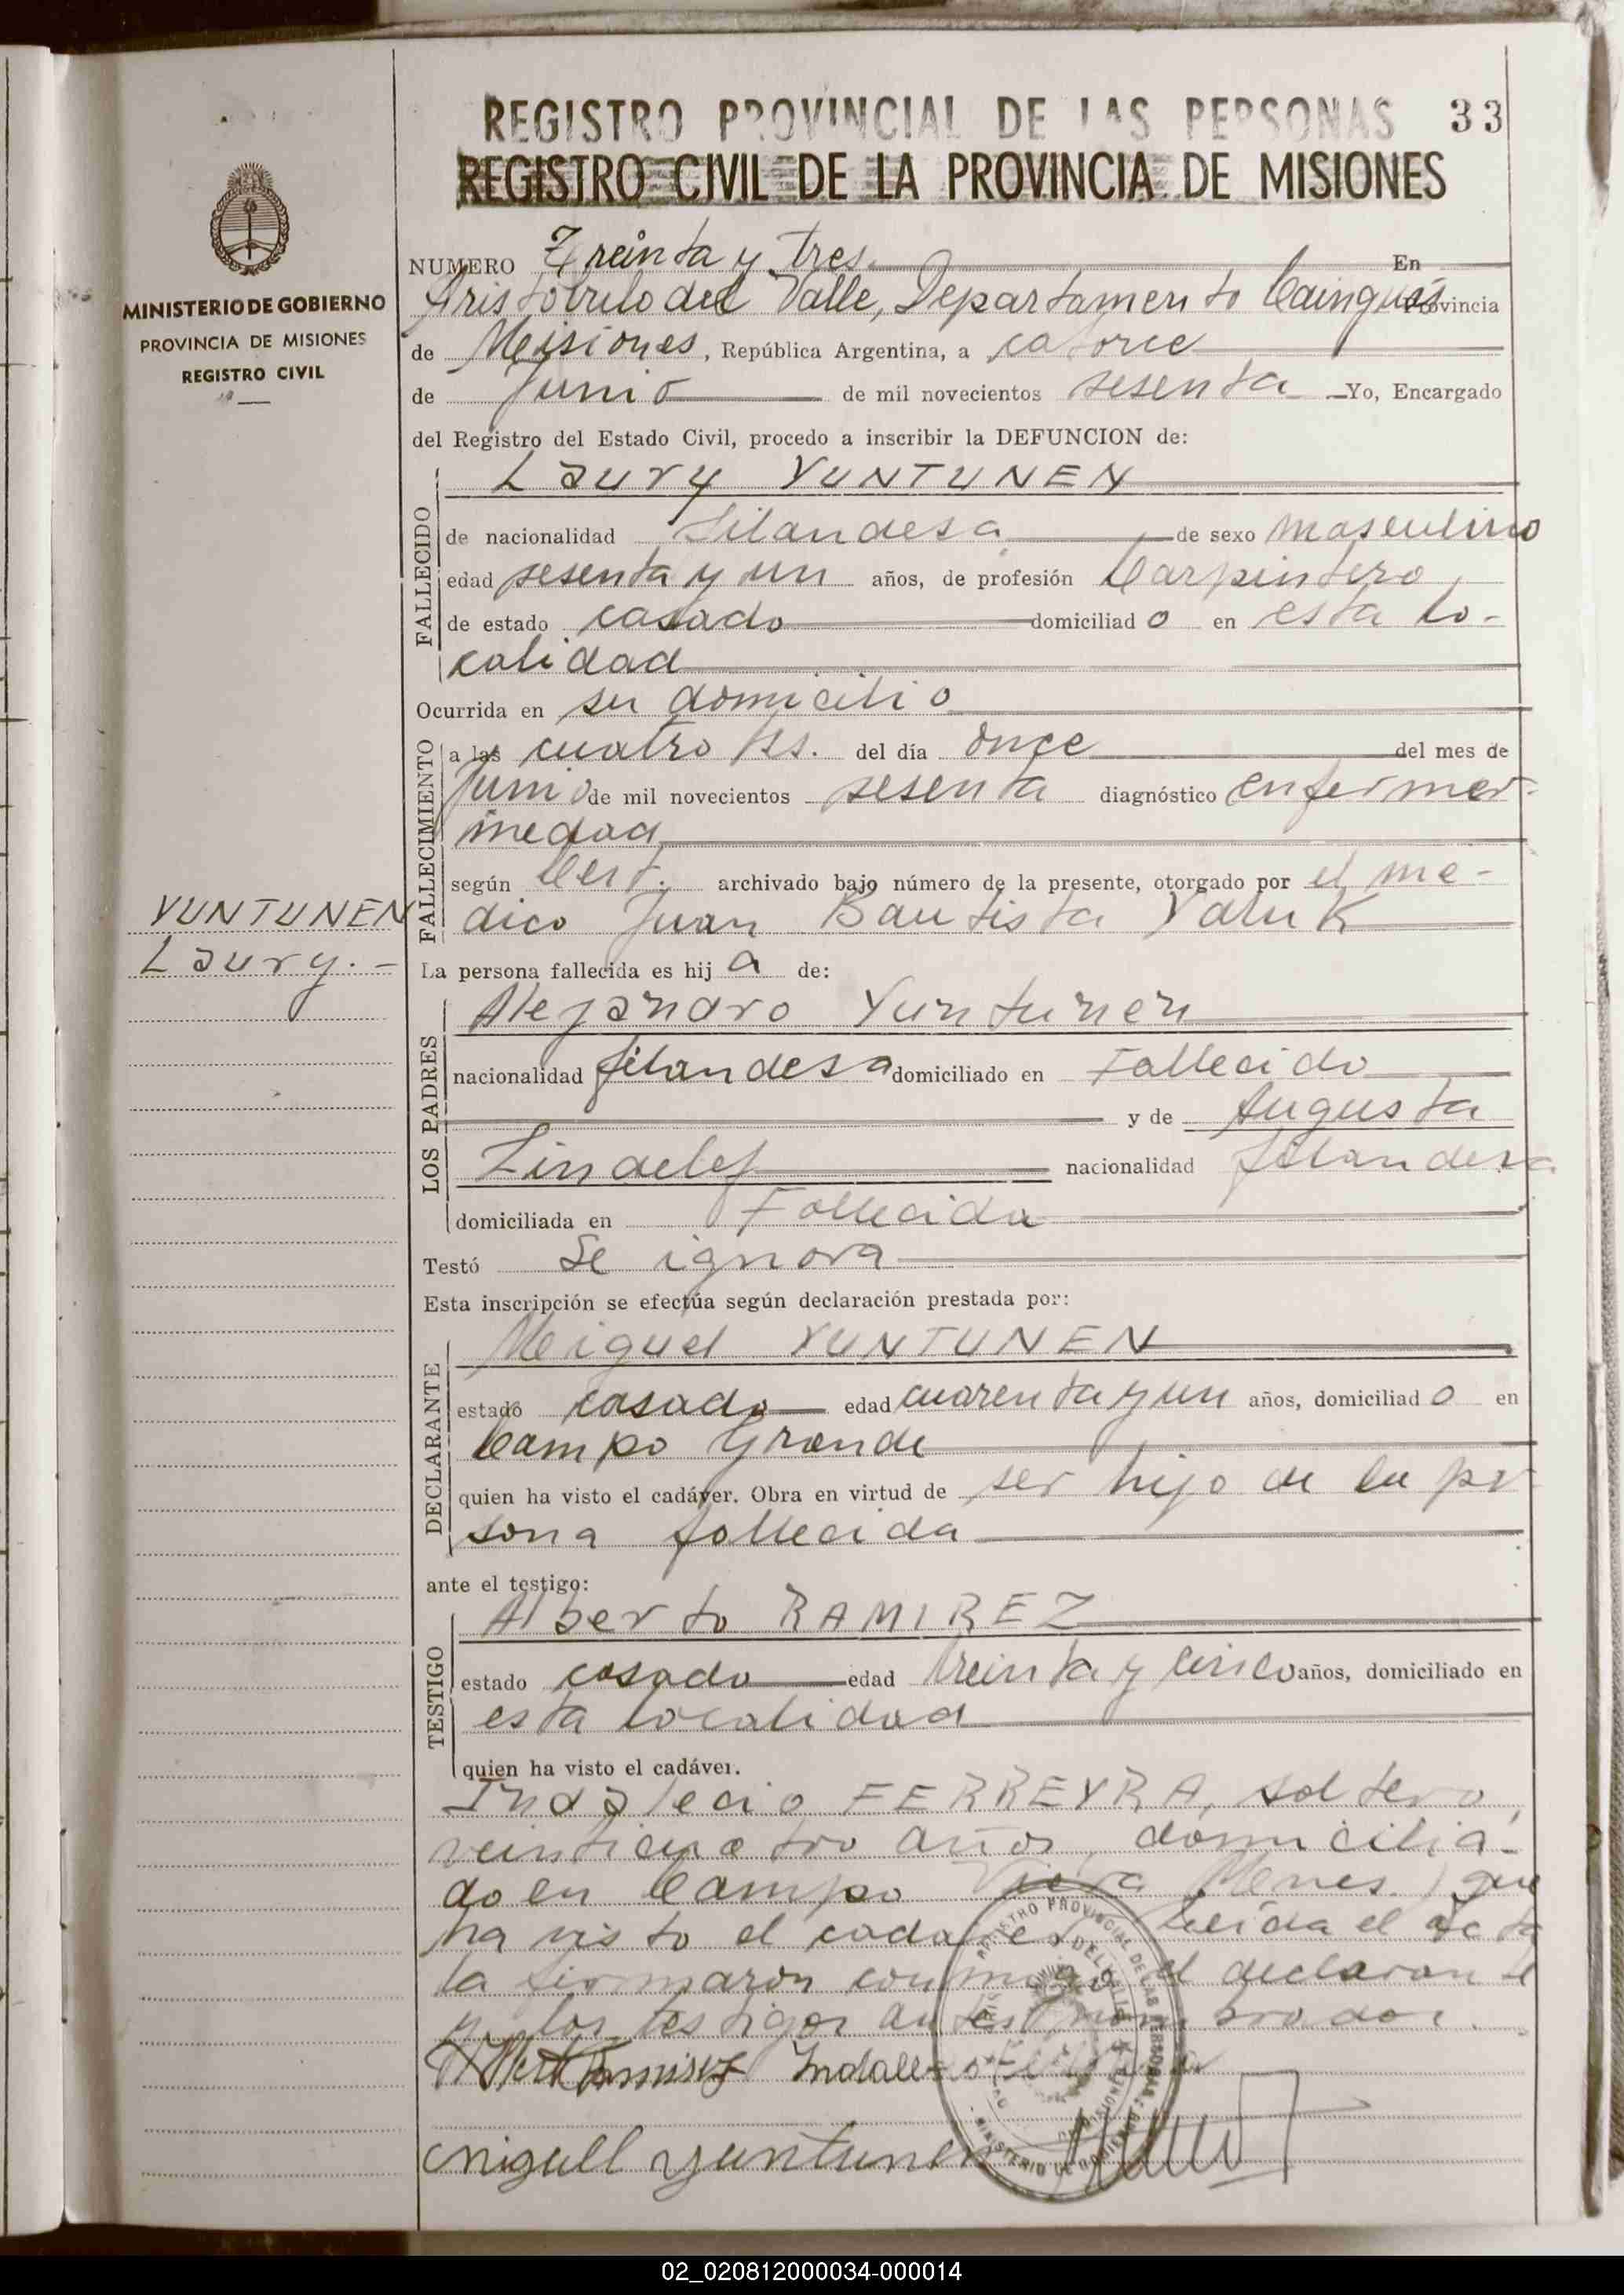 REGISTRO PROVINCIAL DE LAS PERSONAS 33
REGISTRO CIVIL DE LA PROVINCIA DE MISIONES
MINISTERIO DE GOBIERNO
PROVINCIA DE MISIONES
REGISTRO CIVIL
NUMERO Treinta y tres En
Aristóbulo del Valle, Departamento Cainguás Provincia
de Misiones, República Argentina, a catorce
de Junio de mil novecientos sesenta Yo, Encargado
del Registro del Estado Civil, procedo a inscribir la DEFUNCION de:
FALLECIDO
Laury YUNTUNEN
de nacionalidad filandesa de sexo masculino
edad sesenta y un años, de profesión Carpintero,
de estado casado domiciliad o en esta lo-
calidad
Ocurrida en su domicilio
FALLECIMIENTO
a las cuatro hs. del día once del mes de
Junio de mil novecientos sesenta diagnóstico enfermer-
medad
según Cert. archivado bajo número de la presente, otorgado por el mé-
dico Juan Bautista Yaluk
YUNTUNEN
Laury.-
La persona fallecida es hij a de:
LOS PADRES
Alejandro Yuntunen
nacionalidad filandesa domiciliado en Fallecido
y de Augusta
Lindelef nacionalidad filandesa
domiciliada en Fallecida
Testó Se ignora
Esta inscripción se efectúa según declaración prestada por:
DECLARANTE
Miguel YUNTUNEN
estado casado edad cuarenta y un años, domiciliad o en
Campo Grande
quien ha visto el cadáver. Obra en virtud de ser hijo de la per
sona fallecida
ante el testigo:
TESTIGO
Alberto RAMIREZ
estado casado edad treinta y cinco años, domiciliado en
esta localidad
quien ha visto el cadáver.
Indalecio FERREYRA, soltero,
veinticuatro años, domicilia-
do en Campo Viera Mnes.) que
ha visto el cadaver. Leída el acta
la firmaron conmigo el declarante
y los testigos antes nombrados.
Indalecio Ferreyra
Miguell yuntunen
02_020812000034-000014